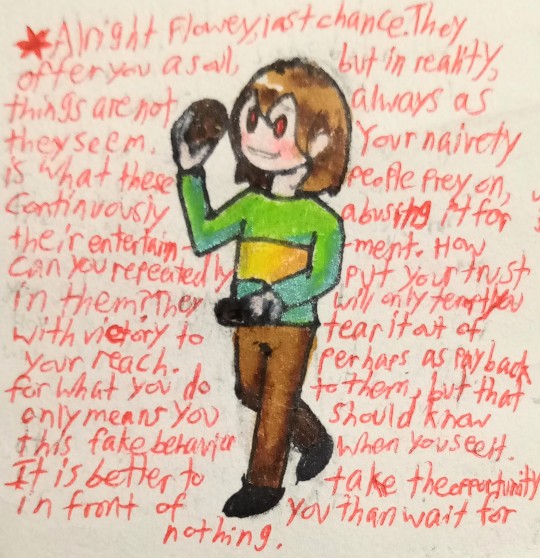 *Alright Flowey, last chance. They
offer you a soul, but in reality,
things are not always as
they seem. Your naivety
is what these people prey on,
continuously abusing it for
their entertain- -ment. How
can you repeatedly put your trust
in them? They will only tempt you
with victory to tear it out of
your reach. perhaps as payback
for what you do to them, but that
only means you should know
this fake behavior when you see it.
It is better to take the opportunity
in front of you than wait for
nothing.